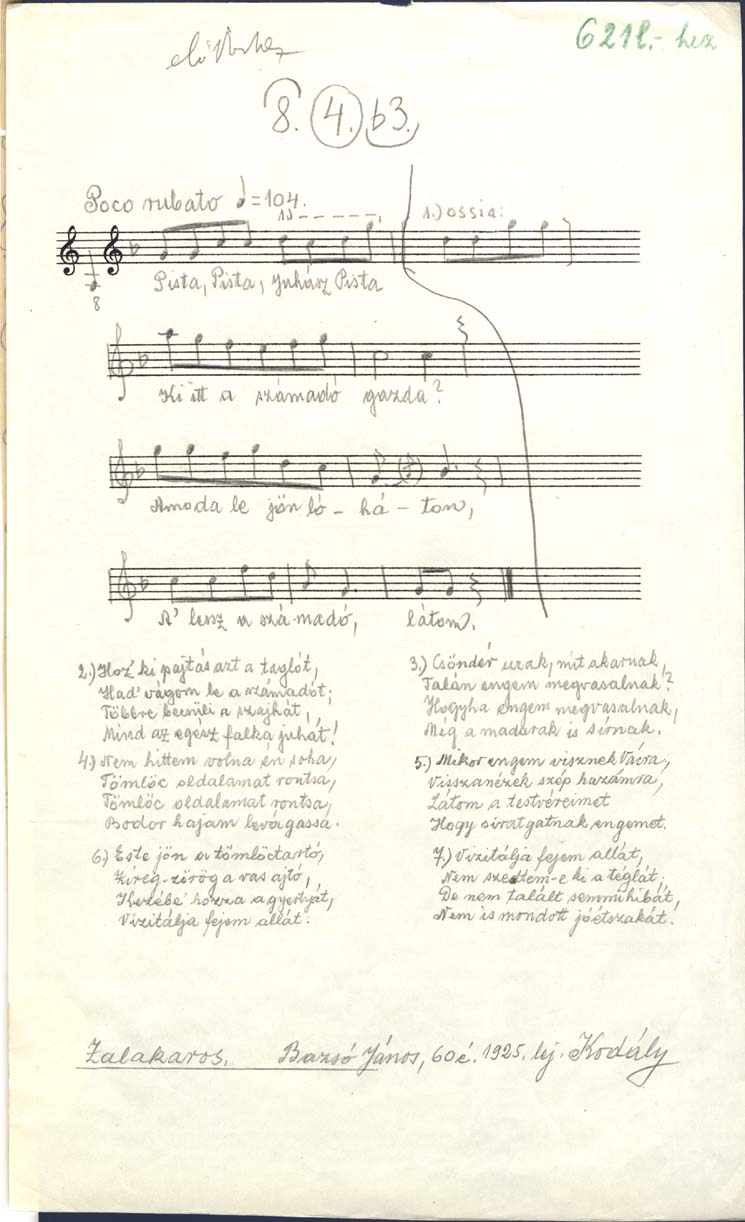 621l.- hez
8. 4. b3.
Poco rubato ♩=104.
1.) ossia:
8
Pista, Pista, juhász Pista
Ki itt a számadó gazda?
Amoda le jön ló - há - ton,
A' lesz a szá-madó, látom.
2.) Hoz' ki pajtás azt a taglót,
Had' vágom le a számadót;
Többre becsüli a szajhát,
Mind az egész falka juhát!
3.) Csöndér urak, mit akarnak,
Talán engem megvasalnak?
Hogyha engem megvasalnak,
Még a madarak is sírnak.
4.) Nem hittem volna én soha,
Tömlöc oldalamat rontsa,
Tömlöc oldalamat rontsa,
Bodor hajam levágassa.
5.) Mikor engem visznek Vácra,
Visszanézek szép hazámra,
Látom a testvéreimet
Hogy siratgatnak engemet.
6.) Este jön a tömlöctartó,
Zireg-zörög a vas ajtó,
Kezébe' hozza a gyertyát,
Vizitálja fejem allát.
7.) Vizitálja fejem allát,
Nem szedtem-e ki a téglát;
De nem talált semmi hibát,
Nem is mondott jóétszakát.
Zalakaros. Bazsó János, 60 é. 1925. lej. Kodály